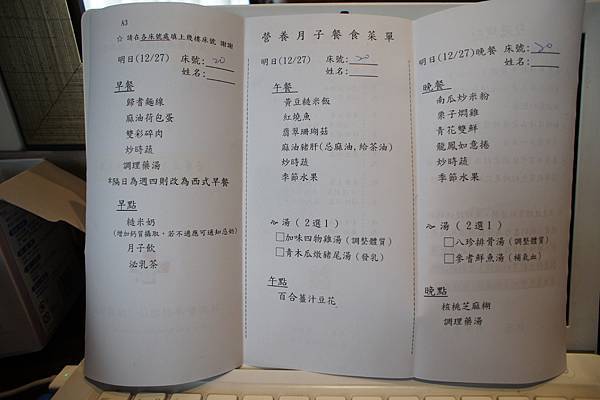 A3
☆ 請在各床號處填上幾樓床號 謝謝
明日(12/27) 床號: 20
姓名:
早餐
歸耆麵線
麻油荷包蛋
雙彩碎肉
炒時蔬
調理藥湯
*隔日為週四則改為西式早餐
早點
糙米奶
(增加鈣質攝取，若不適應可通知忌奶)
月子飲
泌乳茶
營養月子餐食菜單
明日(12/27) 床號: 20
姓名:
午餐
黃豆糙米飯
紅燒魚
翡翠珊瑚菇
麻油豬肝(忌麻油,給茶油)
炒時蔬
季節水果
～湯（2選1）
□加味四物雞湯(調整體質)
□青木瓜燉豬尾湯(發乳)
午點
百合薑汁豆花
明日(12/27)晚餐 床號: 20
姓名:
晚餐
南瓜炒米粉
栗子燜雞
青花雙鮮
龍鳳如意捲
炒時蔬
季節水果
～湯（2選1）
□八珍排骨湯(調整體質)
□參耆鮮魚湯(補氣血)
晚點
核桃芝麻糊
調理藥湯